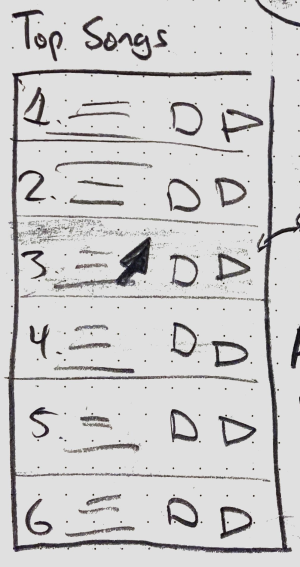 Top Songs
1.
2.
3
4.
5.
6